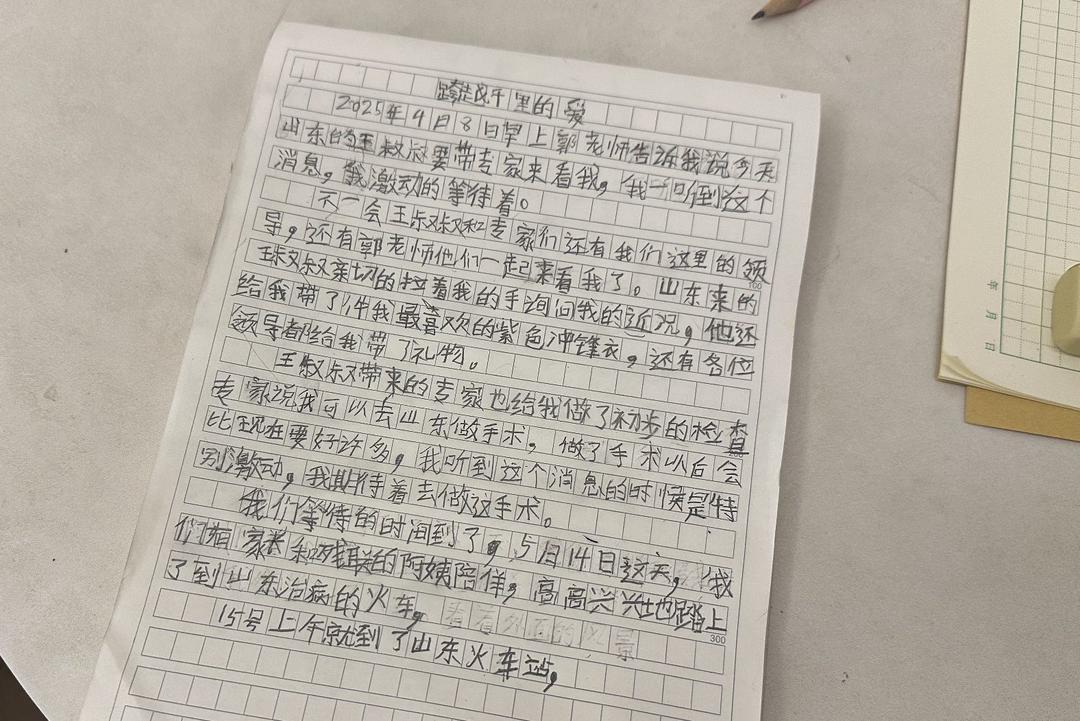 跨越千里的爱
2025年4月8日早上郭老师告诉我说今天
山东的王叔叔要带专家来看我，我一听到这个
消息，我激动的等待着。
不一会王叔叔和专家们还有我们这里的领
导，还有郭老师他们一起来看我了。山东来的
王叔叔亲切的拉着我的手询问我的近况，他还
给我带了件我最喜欢的紫色冲锋衣，还有各位
领导都给我带了礼物。
王叔叔带来的专家也给我做了初步的检查
专家说我可以去山东做手术，做了手术以后会
比现在要好许多，我听到这个消息的时候是特
别激动，我期待着去做这手术。
我们等待的时间到了，5月14日这天，我
们有家长和残联的阿姨陪伴，高高兴兴地踏上
了到山东治病的火车，看着外面的风景
15号上午就到了山东火车站，
100
200
300
年
月
日